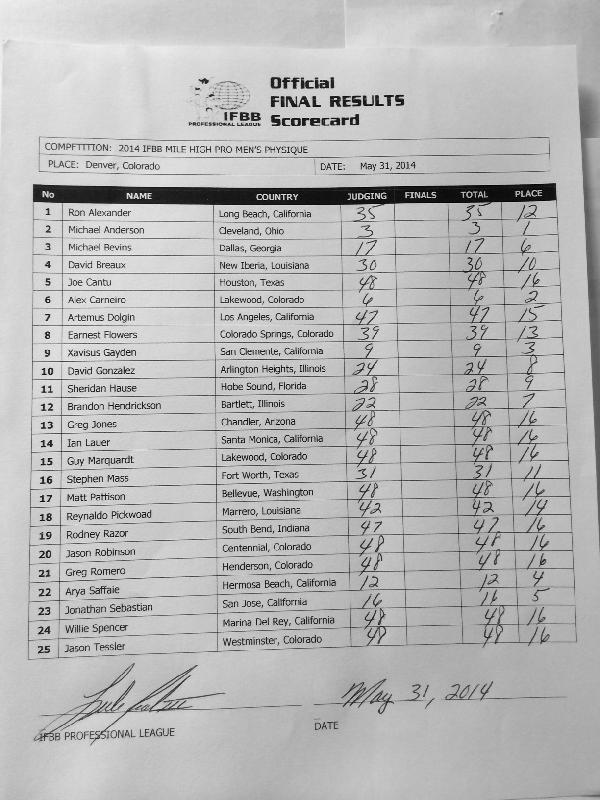 Official
FINAL RESULTS
Scorecard
IFBB
PROFESSIONAL LEAGUE
COMPETITION: 2014 IFBB MILE HIGH PRO MEN'S PHYSIQUE
PLACE: Denver, Colorado DATE: May 31, 2014
No NAME COUNTRY JUDGING FINALS TOTAL PLACE
1 Ron Alexander Long Beach, California 35 35 12
2 Michael Anderson Cleveland, Ohio 3 3 1
3 Michael Bevins Dallas, Georgia 17 17 6
4 David Breaux New Iberia, Louisiana 30 30 10
5 Joe Cantu Houston, Texas 48 48 16
6 Alex Carneiro Lakewood, Colorado 6 6 2
7 Artemus Dolgin Los Angeles, California 47 47 15
8 Earnest Flowers Colorado Springs, Colorado 39 39 13
9 Xavisus Gayden San Clemente, California 9 9 3
10 David Gonzalez Arlington Heights, Illinois 24 24 8
11 Sheridan Hause Hobe Sound, Florida 28 28 9
12 Brandon Hendrickson Bartlett, Illinois 22 22 7
13 Greg Jones Chandler, Arizona 48 48 16
14 Ian Lauer Santa Monica, California 48 48 16
15 Guy Marquardt Lakewood, Colorado 48 48 16
16 Stephen Mass Fort Worth, Texas 31 31 11
17 Matt Pattison Bellevue, Washington 48 48 16
18 Reynaldo Pickwoad Marrero, Louisiana 42 42 14
19 Rodney Razor South Bend, Indiana 47 47 16
20 Jason Robinson Centennial, Colorado 48 48 16
21 Greg Romero Henderson, Colorado 48 48 16
22 Arya Saffaie Hermosa Beach, California 12 12 4
23 Jonathan Sebastian San Jose, California 16 16 5
24 Willie Spencer Marina Del Rey, California 48 48 16
25 Jason Tessler Westminster, Colorado 48 48 16
May 31, 2014
IFBB PROFESSIONAL LEAGUE DATE